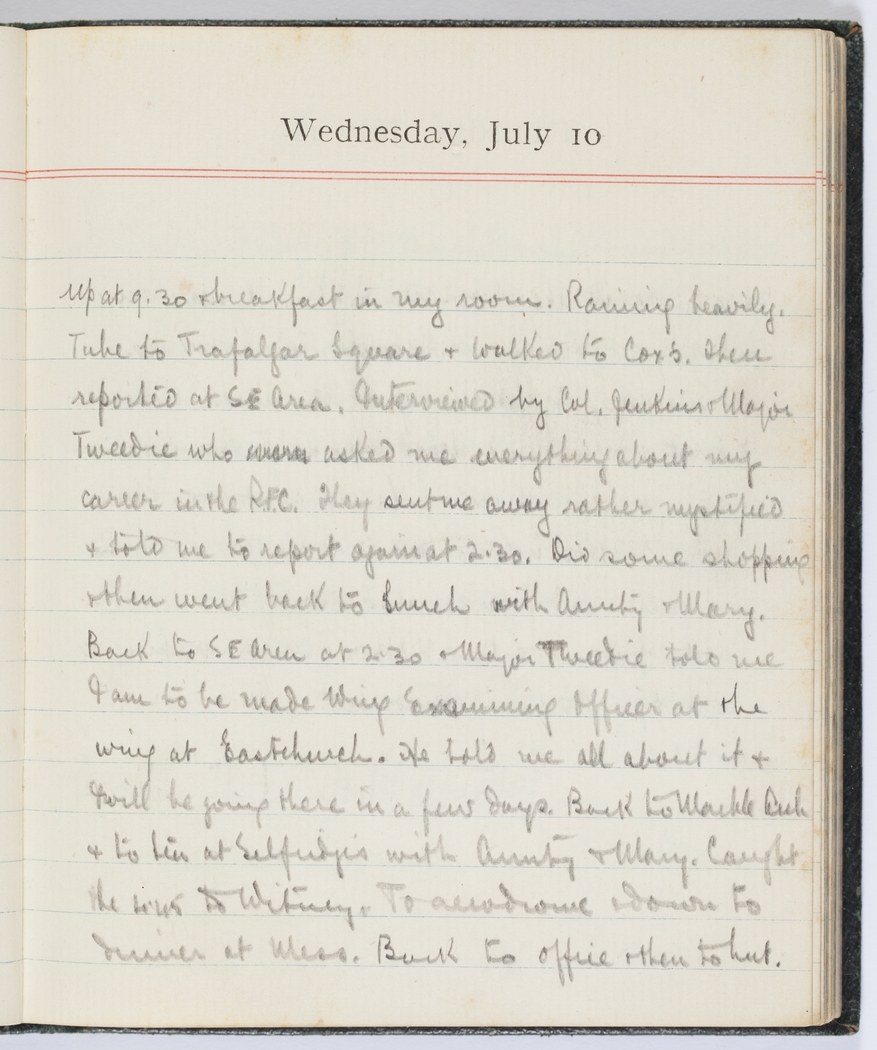 Wednesday, July 10
Up at 9.30 & breakfast in my room. Raining heavily.
Tube to Trafalgar Square & walked to Cox's. Then
reported at SE Area. Interviewed by Col. Jenkins & Major
Tweedie who asked me everything about my
career in the R.F.C. They sent me away rather mystified
& told me to report again at 2.30. Did some shopping
& then went back to lunch with Aunty & Mary.
Back to SE Area at 2.30 & Major Tweedie told me
I am to be made Wing Examining Officer at the
wing at Eastchurch. He told me all about it &
I will be going there in a few days. Back to Marble Arch
& to tea at Selfridges with Aunty & Mary. Caught
the 4.45 to Witney. To aerodrome & down to
dinner at Mess. Back to office & then to hut.